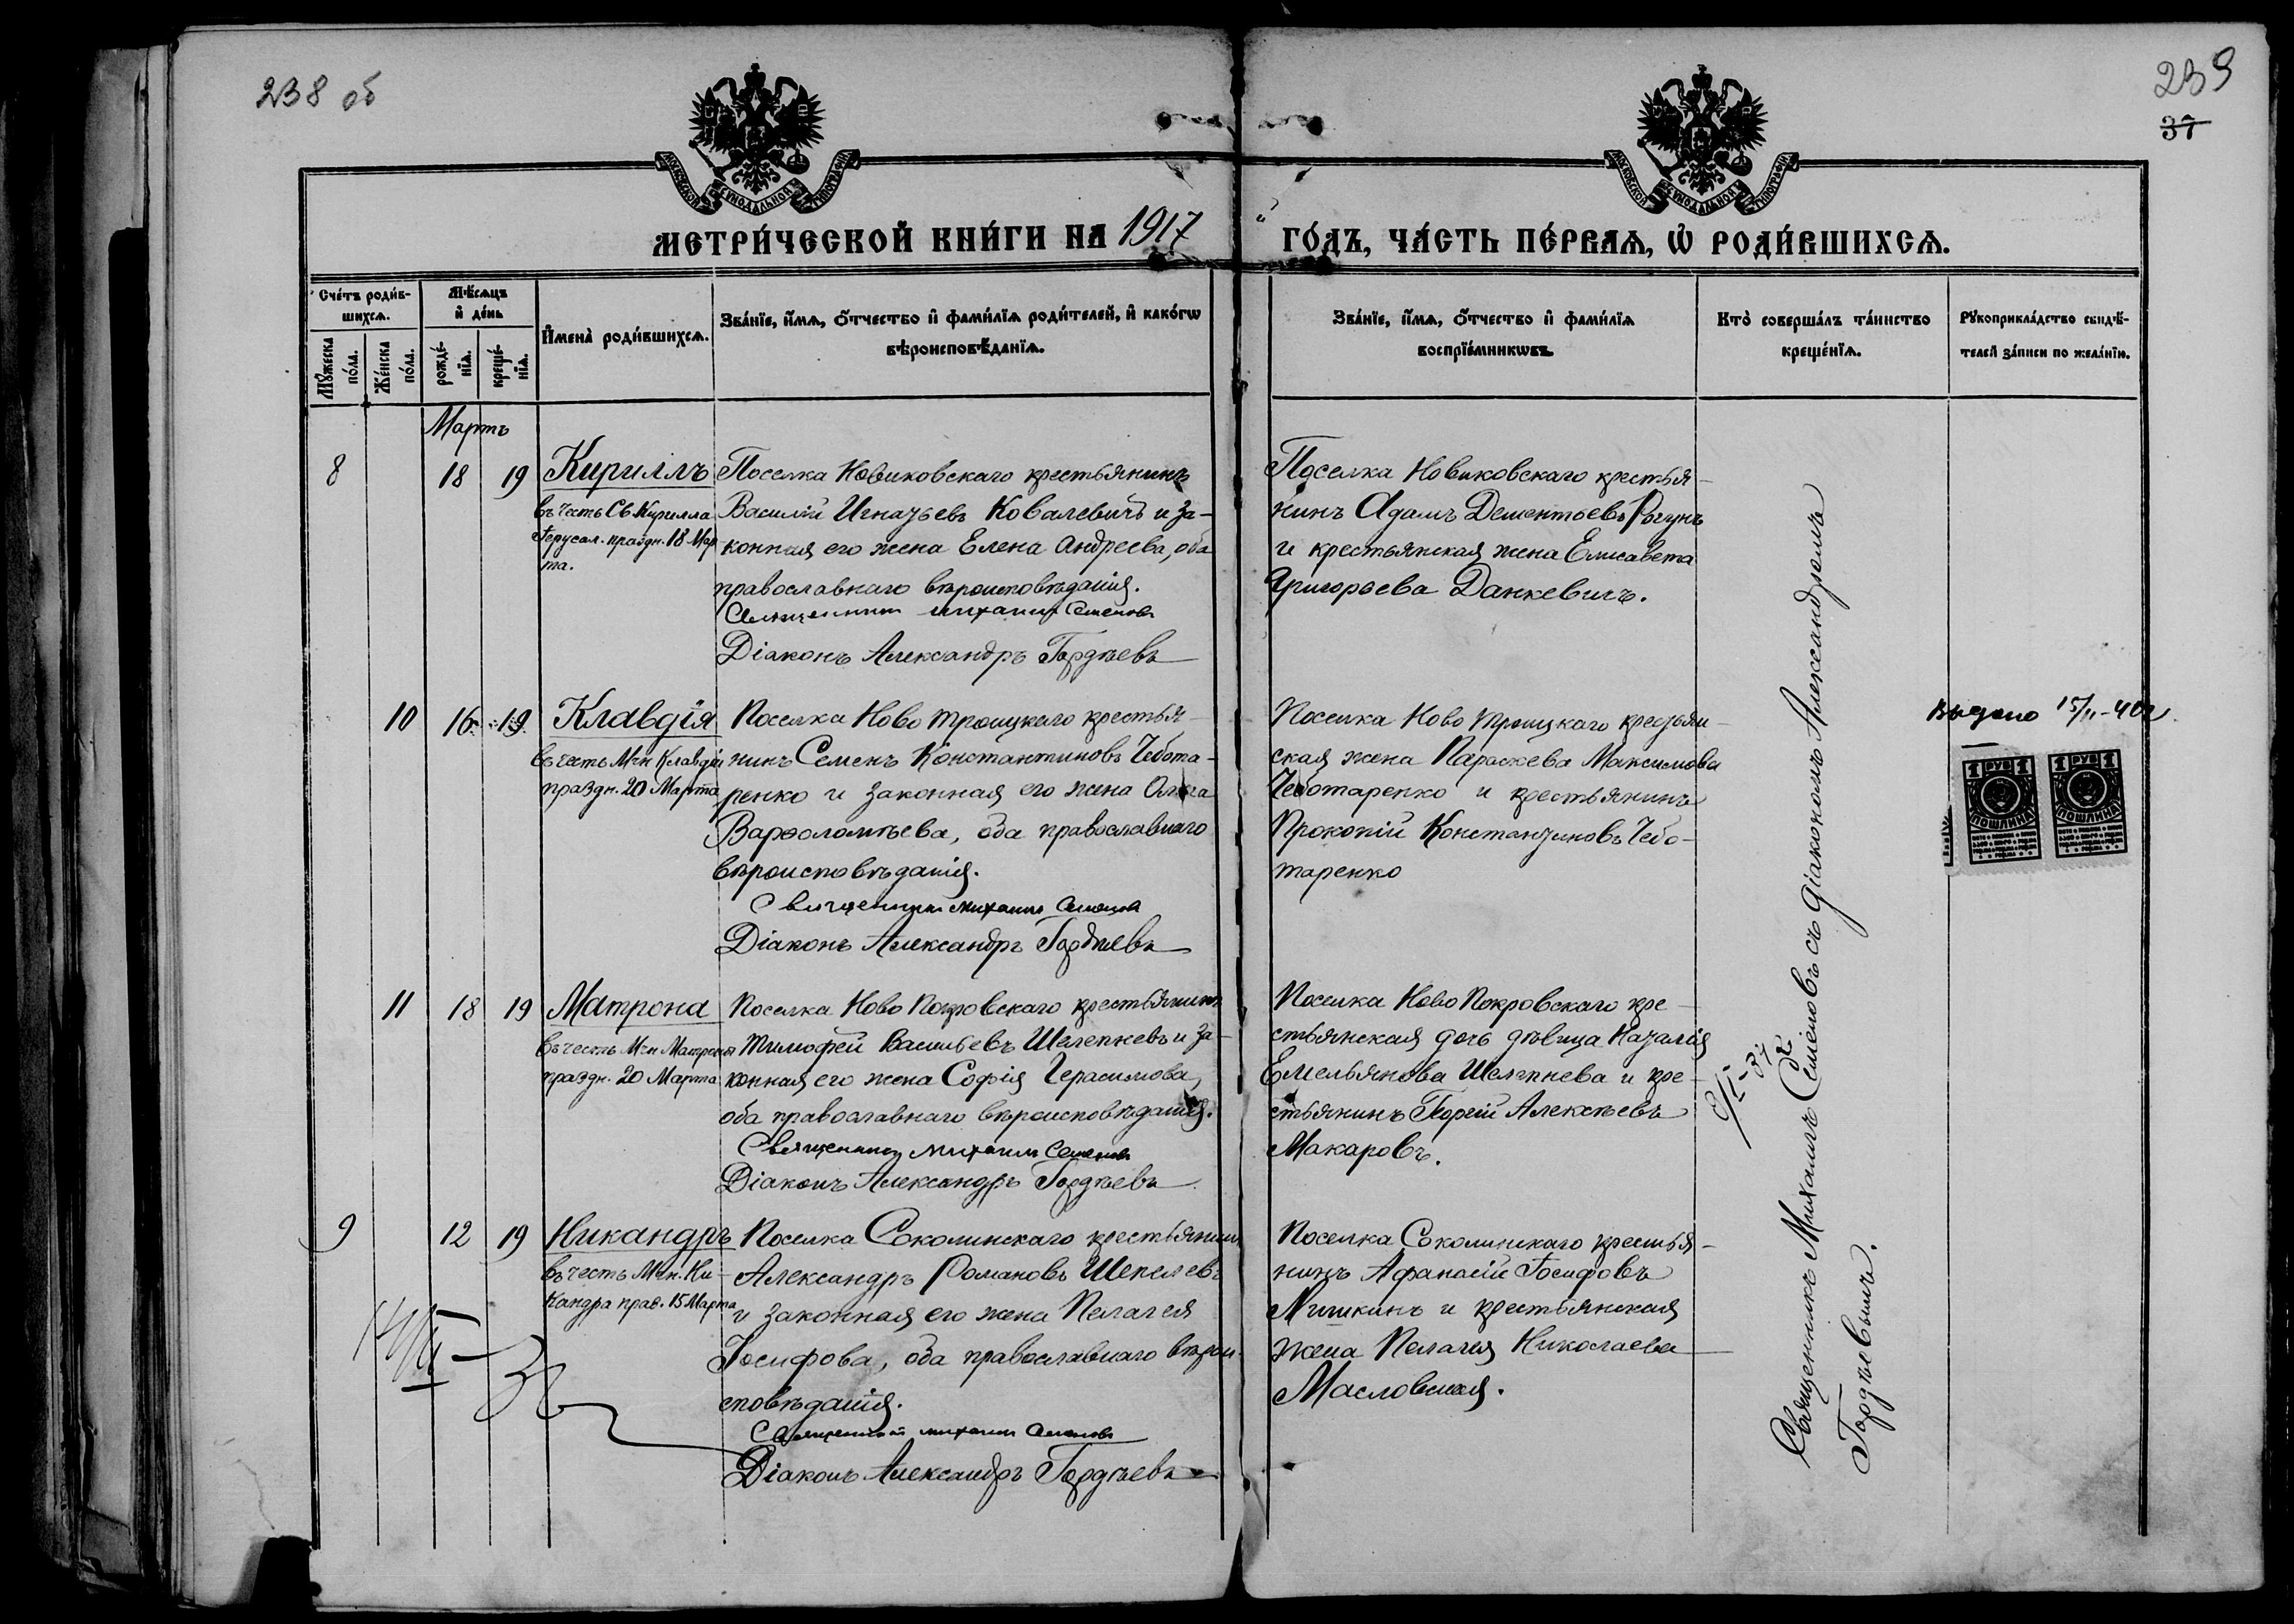 238 об
239
37
МОСКОВСКОЙ СѴНОДАЛЬНОЙ ТИПОГРАФІИ
МОСКОВСКОЙ СѴНОДАЛЬНОЙ ТИПОГРАФІИ
МЕТРИ́ЧЕСКОЙ КНИ́ГИ НА 1917 ГО́ДЪ, ЧА́СТЬ ПЕ́РВАѦ, Ѡ РОДИ́ВШИХСѦ.
Сче́тъ роди́в-
шихсѧ.
Мꙋ́жеска
по́ла.
Же́нска
по́ла.
Мѣ́сѧцъ
и҆ де́нь
рожде́-
нїѧ.
креще́-
нїѧ.
И҆мена̀ роди́вшихсѧ.
Зва́нїе, и҆́мѧ, ѻ҆́тчество и҆ фами́лїѧ роди́телей, и҆ како́гѡ
вѣроисповѣ́данїѧ.
Зва́нїе, и҆́мѧ, ѻ҆́тчество и҆ фами́лїѧ
воспрїе́мникѡвъ.
Кто̀ соверша́лъ та́инство
креще́нїѧ.
Рꙋкоприкла́дство свидѣ́-
телей за́писи по жела́нїю.
Мартъ
8 18 19 Кириллъ
въ честь Св. Кирилла
Іерусал. праздн. 18 Мар
та.
Поселка Новиковскаго крестьянинъ
Василій Игнатьевъ Ковалевичъ и за-
конная его жена Елена Андреева, оба
православнаго вѣроисповѣданія.
Священникъ Михаилъ Семеновъ
Діаконъ Александръ Гордѣевъ
Поселка Новиковскаго крестья-
нинъ Адамъ Дементьевъ Рогунъ
и крестьянская жена Елисавета
Григорьева Данкевичъ.
10 16 19 Клавдія
въ честь Мчн Клавдіи
праздн. 20 Марта
Поселка Ново Троицкаго крестья-
нинъ Семенъ Константиновъ Чебота-
ренко и законная его жена Ольга
Варѳоломѣева, оба православнаго
вѣроисповѣданія.
Священникъ Михаилъ Семеновъ
Діаконъ Александръ Гордѣевъ
Поселка Ново Троицкаго крестьян-
ская жена Параскева Максимова
Чеботаренко и крестьянинъ
Прокопій Константиновъ Чебо-
таренко
Выдано 15/II-40г.
1 РУБ 1
ПОШЛИНА
1 РУБ 1
ПОШЛИНА
11 18 19 Матрона
въ честь Мчн Матроны
праздн. 20 Марта
Поселка Ново Покровскаго крестьянинъ
Тимофей Васильевъ Шелепневъ и за-
конная его жена Софія Герасимова,
оба православнаго вѣроисповѣданія.
Священникъ Михаилъ Семеновъ
Діаконъ Александръ Гордѣевъ
Поселка Ново Покровскаго кре-
стьянская дочь дѣвица Наталія
Емельянова Шелепнева и кре-
стьянинъ Георгій Алексѣевъ
Макаровъ.
9 12 19 Никандръ
въ честь Мчн. Ни-
кандра праз. 15 Марта
Поселка Соколинскаго крестьянинъ
Александръ Романовъ Шепелевъ
и законная его жена Пелагея
Іосифова, оба православнаго вѣрои-
сповѣданія.
Священникъ Михаилъ Семеновъ
Діаконъ Александръ Гордѣевъ
Поселка Соколинскаго крестья-
нинъ Афанасій Іосифовъ
и крестьянская
жена Пелагея Николаева
Масловская.
Священникъ Михаилъ Семеновъ съ діакономъ Александромъ
Гордѣевымъ.